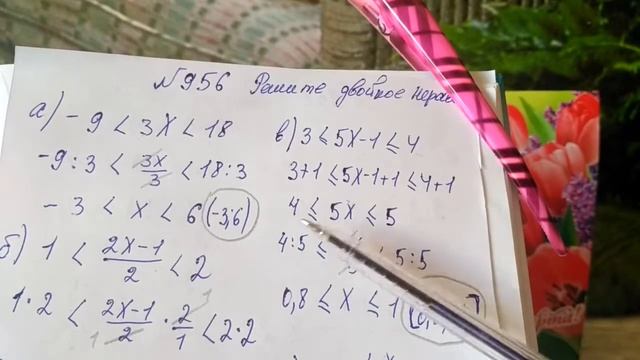 №956 Решите двойное
а) -9 < 3x < 18
-9:3 < 3x/3 < 18:3
-3 < x < 6 (-3;6)
б) 1 < 2x-1/2 < 2
1·2 < 2x-1/2 · 2/1 < 2:2
в) 3 ≤ 5x-1 ≤ 4
3+1 ≤ 5x-1+1 ≤ 4+1
4 ≤ 5x ≤ 5
4:5 ≤ 5:5
0,8 ≤ x ≤ 1